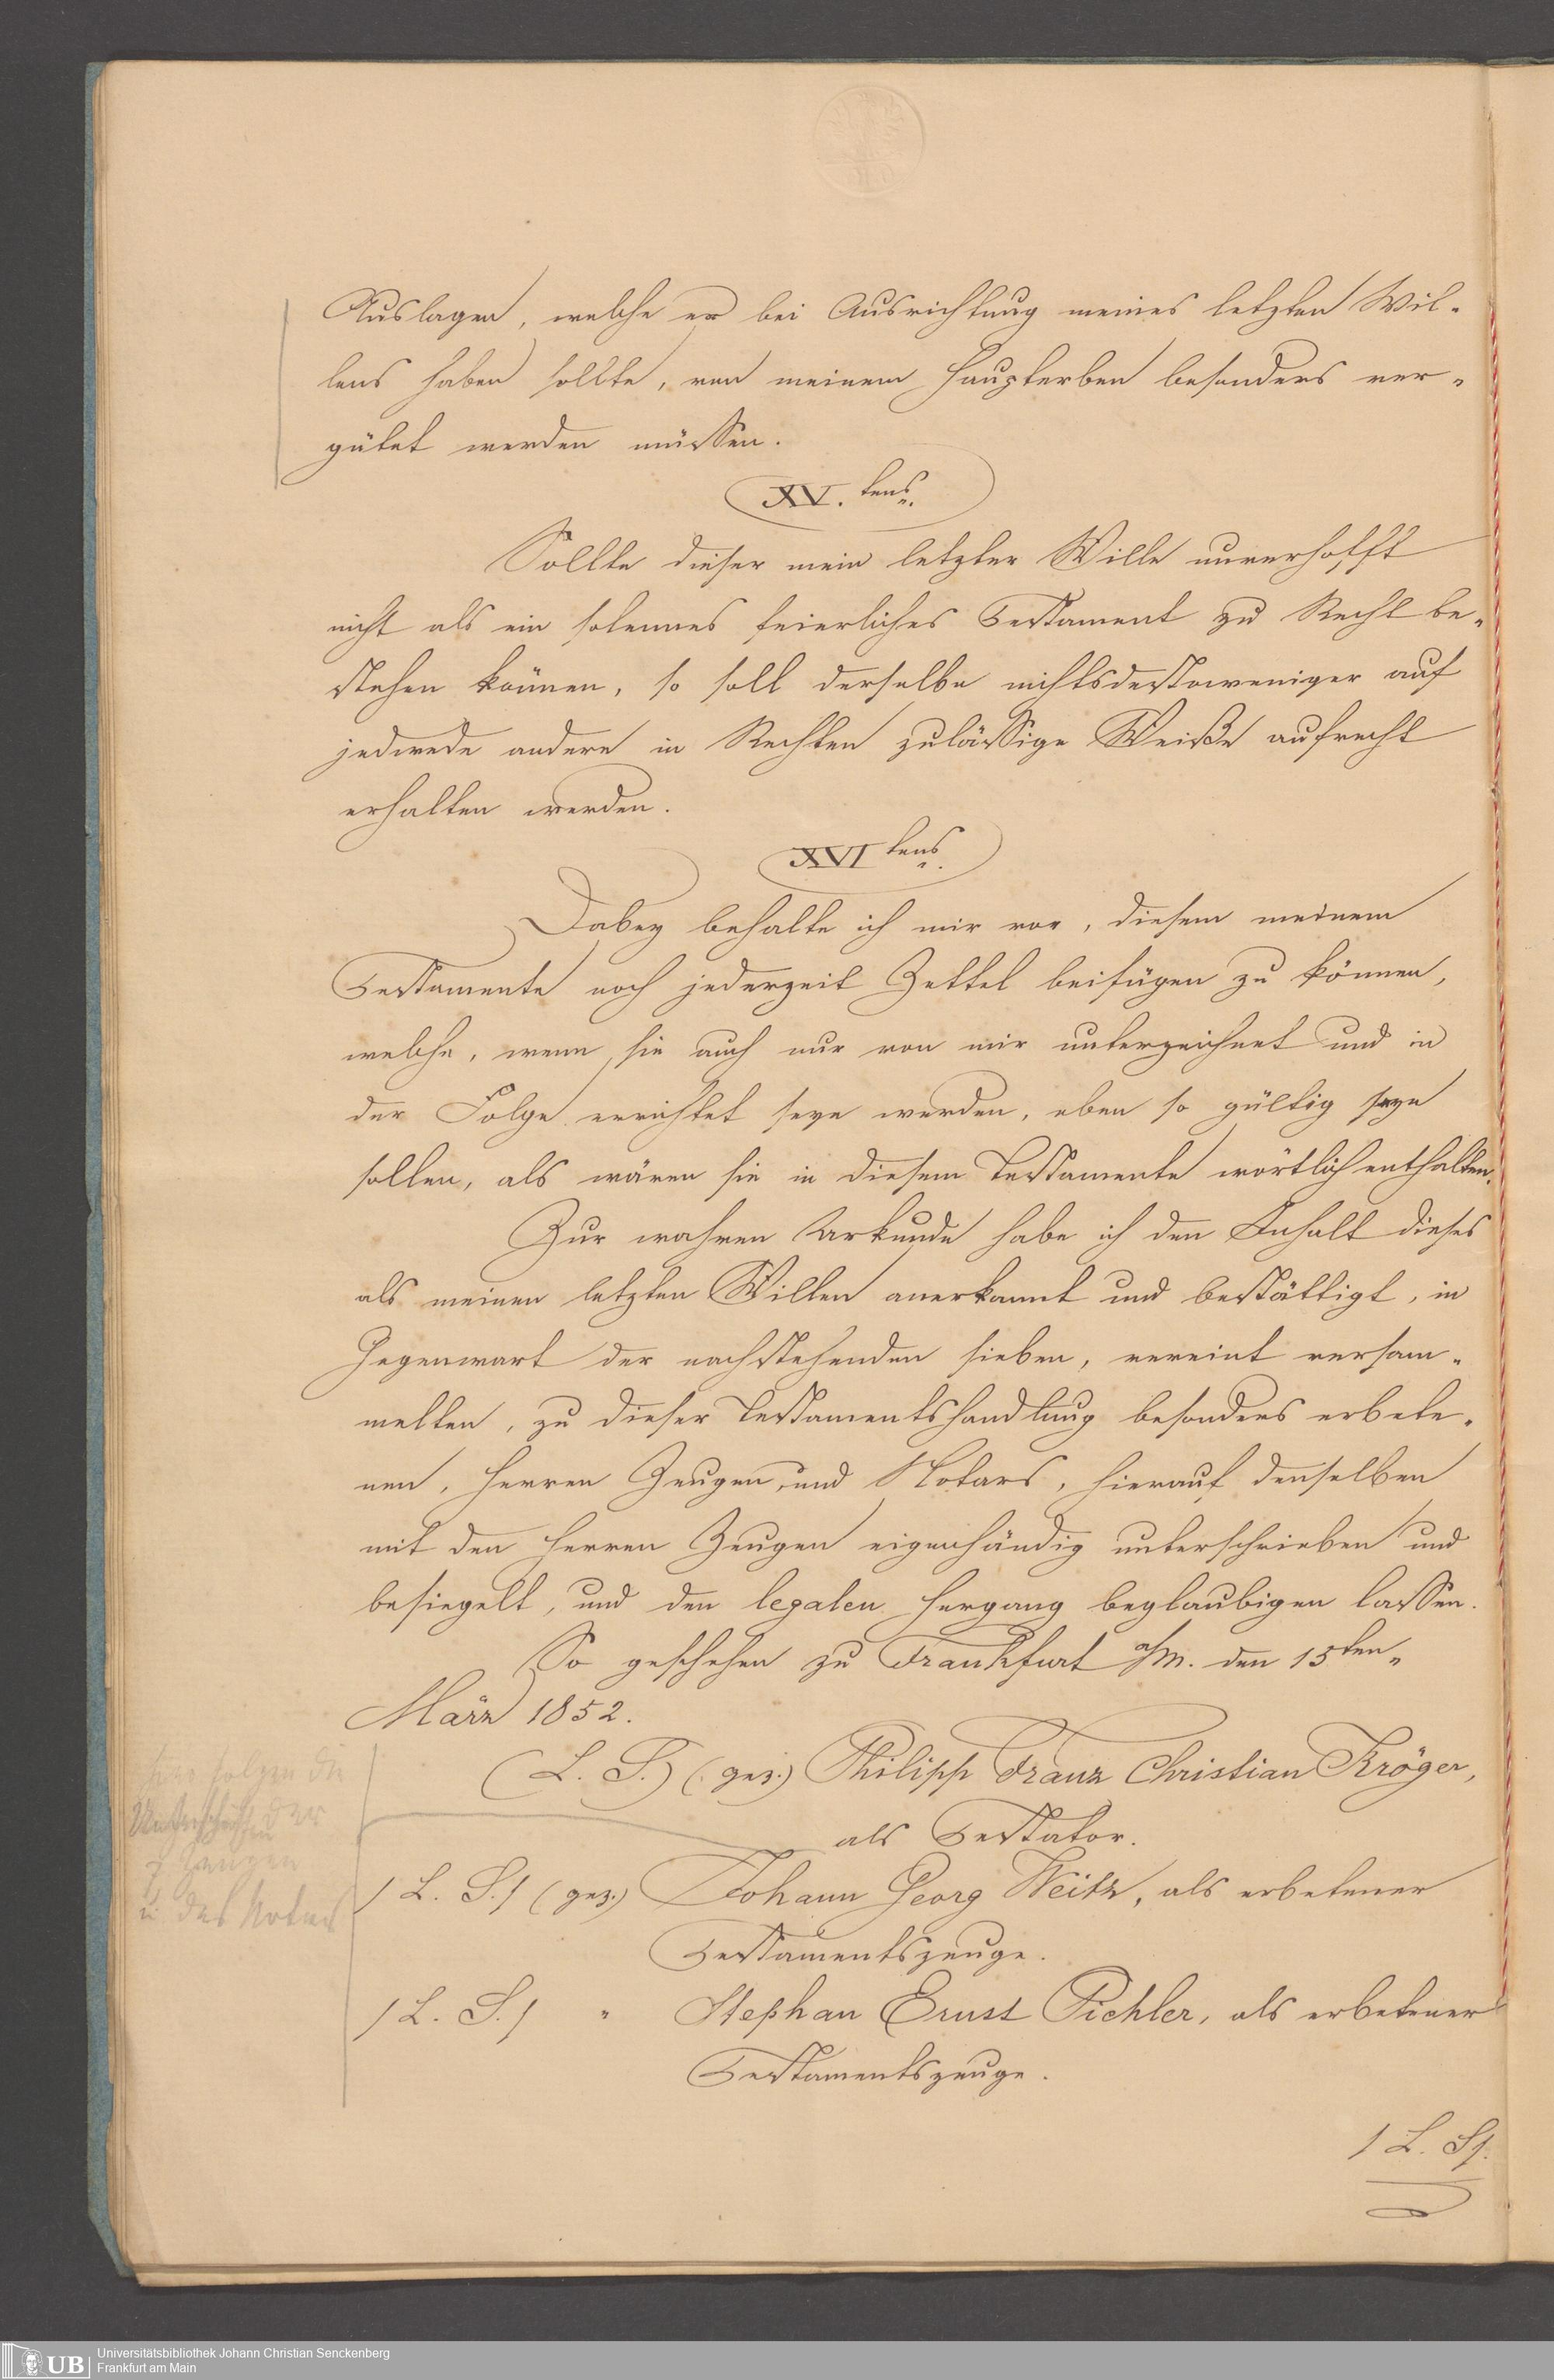 Auslagen, welche er bei Ausrichtung meines letzten Wil-
lens haben sollte, von meinem Haupterben besonders ver-
gütet werden müssen.
XV.tens.
Sollte dieser mein letzter Wille unverhofft
nicht als ein solennes feierliches Testament zu Recht be-
stehen können, so soll derselbe nichtsdestoweniger auf
jedwede andere in Rechten zulässige Weiße aufrecht
erhalten werden.
XVItens.
Dabey behalte ich mir vor, diesem meinem
Testamente noch jederzeit Zettel beifügen zu können,
welche, wenn sie auch nur von mir unterzeichnet und in
der Folge errichtet seyn werden, eben so gültig seyn
sollen, als wären sie in diesem Testamente wörtlich enthalten.
Zur wahren Urkunde habe ich den Inhalt dieses
als meinen letzten Willen anerkannt und bestättigt, in
Gegenwart der nachstehenden sieben, vereint versam-
melten, zu dieser Testamentshandlung besonders erbete-
nen, Herren Zeugen und Notars, hierauf denselben
mit den Herren Zeugen eigenhändig unterschrieben und
besiegelt, und den legalen Hergang beglaubigen lassen.
So geschehen zu Frankfurt a/M. den 15ten
März 1852.
(L. S.) (gez.) Philipp Franz Christian Kröger,
als Testator.
hier folgen die
Unterschriften der
7 Zeugen
u. des Notars
/ L. S. / (gez.) Johann Georg Weitz, als erbetener
Testamentszeuge.
/ L. S. / " Stephan Ernst Pichler, als erbetener
Testamentszeuge.
/ L. S /.
UB Universitätsbibliothek Johann Christian Senckenberg
Frankfurt am Main